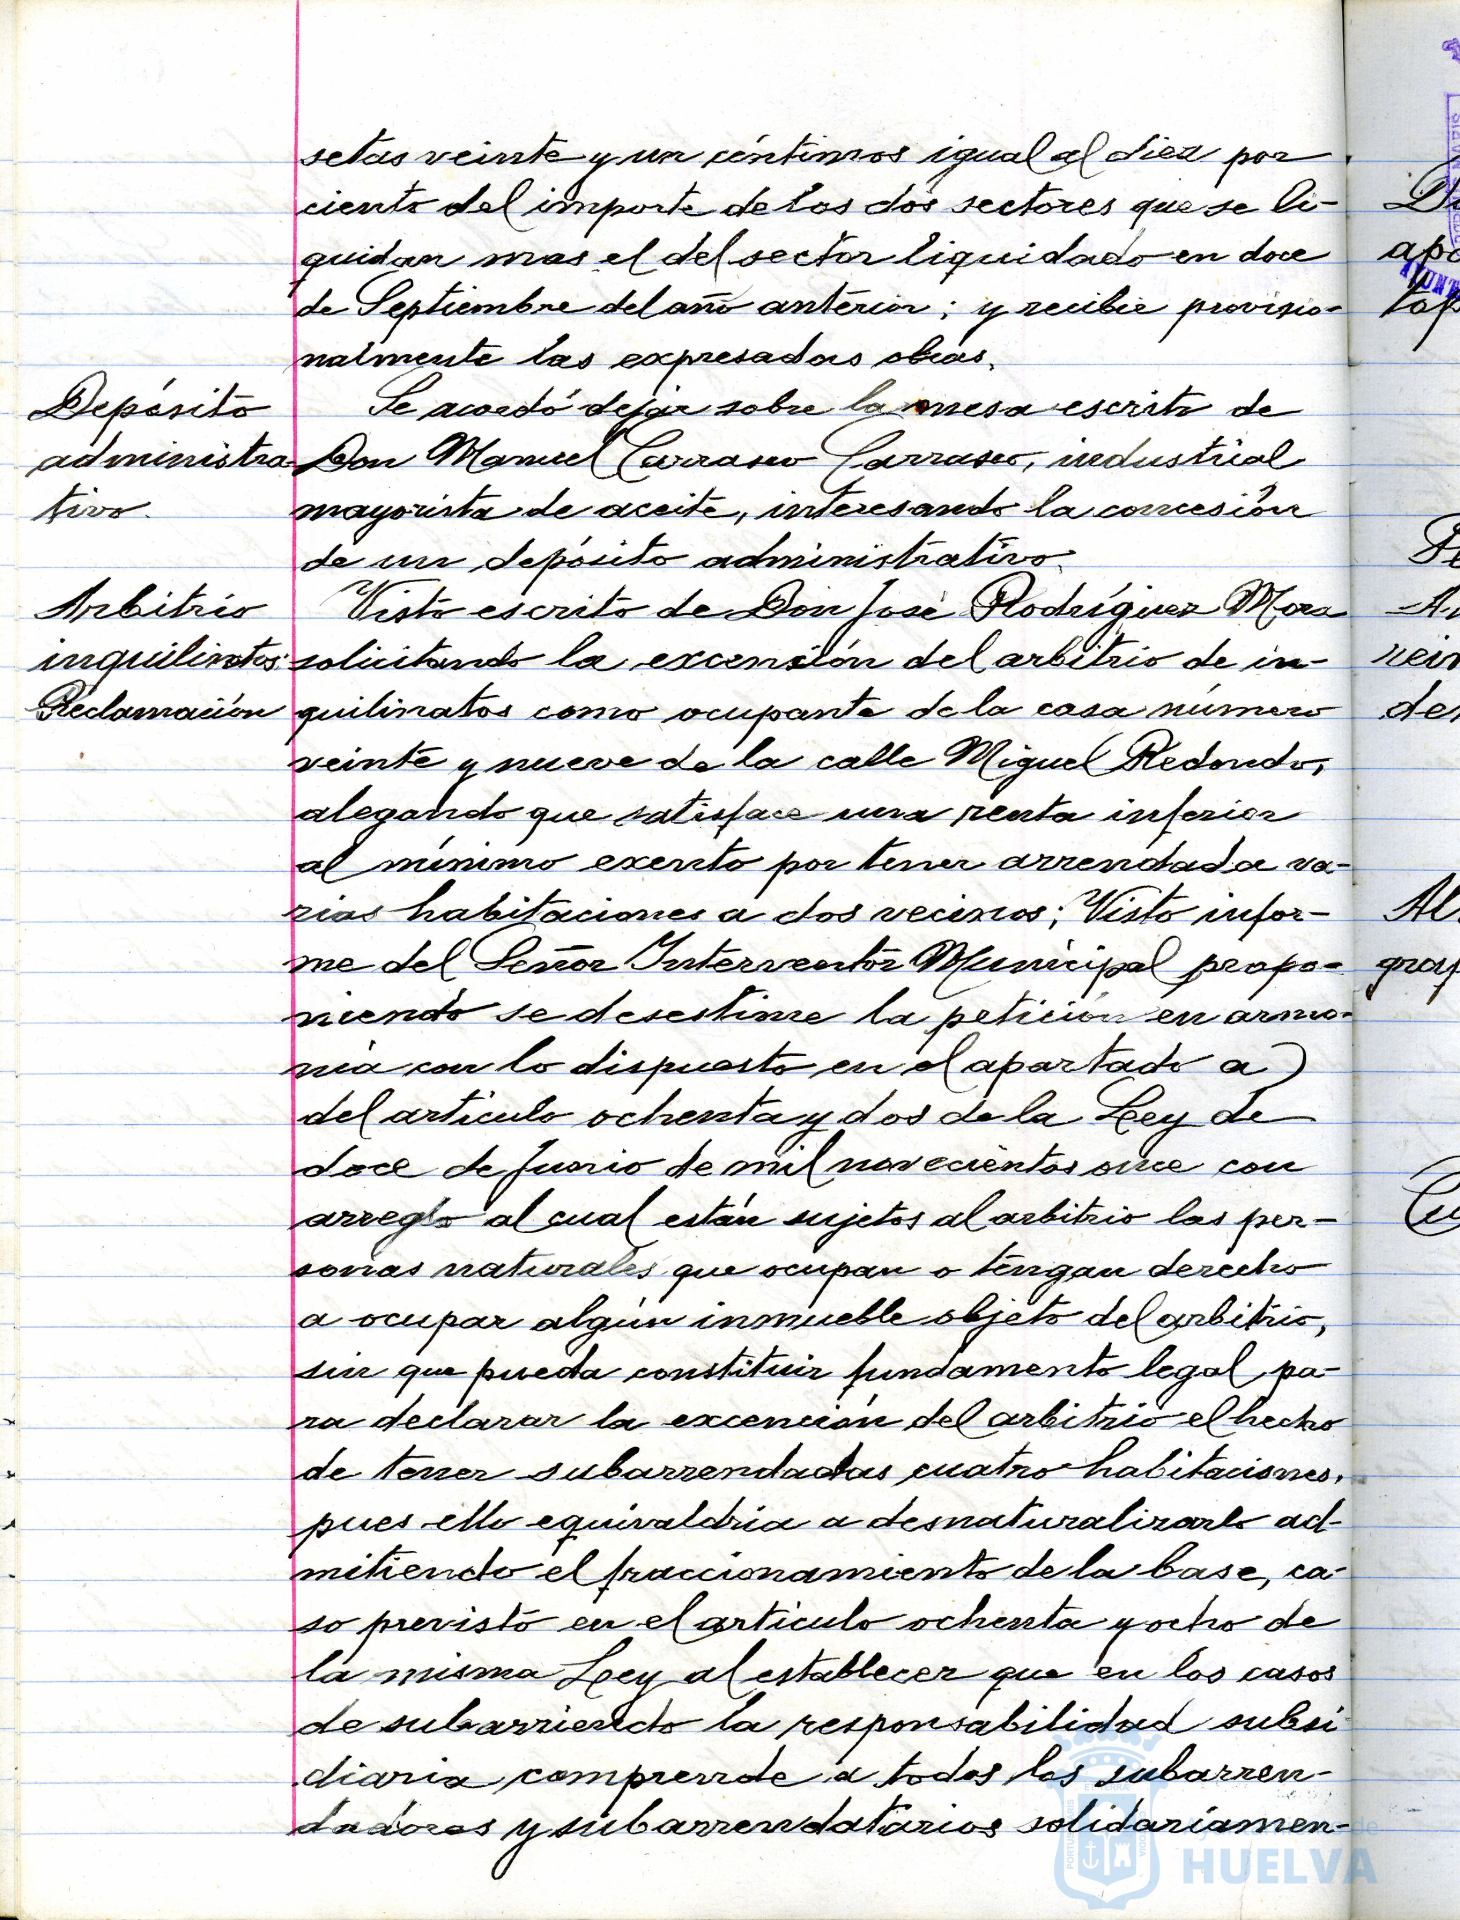 setas veinte y un céntimos igual al diez por
ciento del importe de los dos sectores que se li-
quidan mas el del sector liquidado en doce
de Septiembre del año anterior; y recibir provisio-
nalmente las expresadas obras.
Depósito
administra-
tivo.
Se acordó dejar sobre la mesa escrito de
Don Manuel Carrasco Carrasco, industrial
mayorista de aceite, interesando la concesión
de un depósito administrativo.
Arbitrio
inquilinatos.
Reclamación
Visto escrito de Don José Rodríguez Mora
solicitando la excensión del arbitrio de in-
quilinatos como ocupante de la casa número
veinte y nueve de la calle Miguel Redondo,
alegando que satisface una renta inferior
al mínimo exento por tener arrendada va-
rias habitaciones a dos vecinos; Visto infor-
me del Señor Interventor Municipal propo-
niendo se desestime la petición en armo-
nía con lo dispuesto en el apartado a)
del artículo ochenta y dos de la Ley de
doce de Junio de mil novecientos once con
arreglo al cual están sujetos al arbitrio las per-
sonas naturales que ocupan o tengan derecho
a ocupar algún inmueble objeto del arbitrio,
sin que pueda constituir fundamento legal pa-
ra declarar la excención del arbitrio el hecho
de tener subarrendadas cuatro habitaciones,
pues ello equivaldría a desnaturalizarlo ad-
mitiendo el fraccionamiento de la base, ca-
so previsto en el artículo ochenta y ocho de
la misma Ley al establecer que en los casos
de subarriendo la responsabilidad subsi
diaria comprende a todos los subarren-
dadores y subarrendatarios solidariamen-
HUELVA